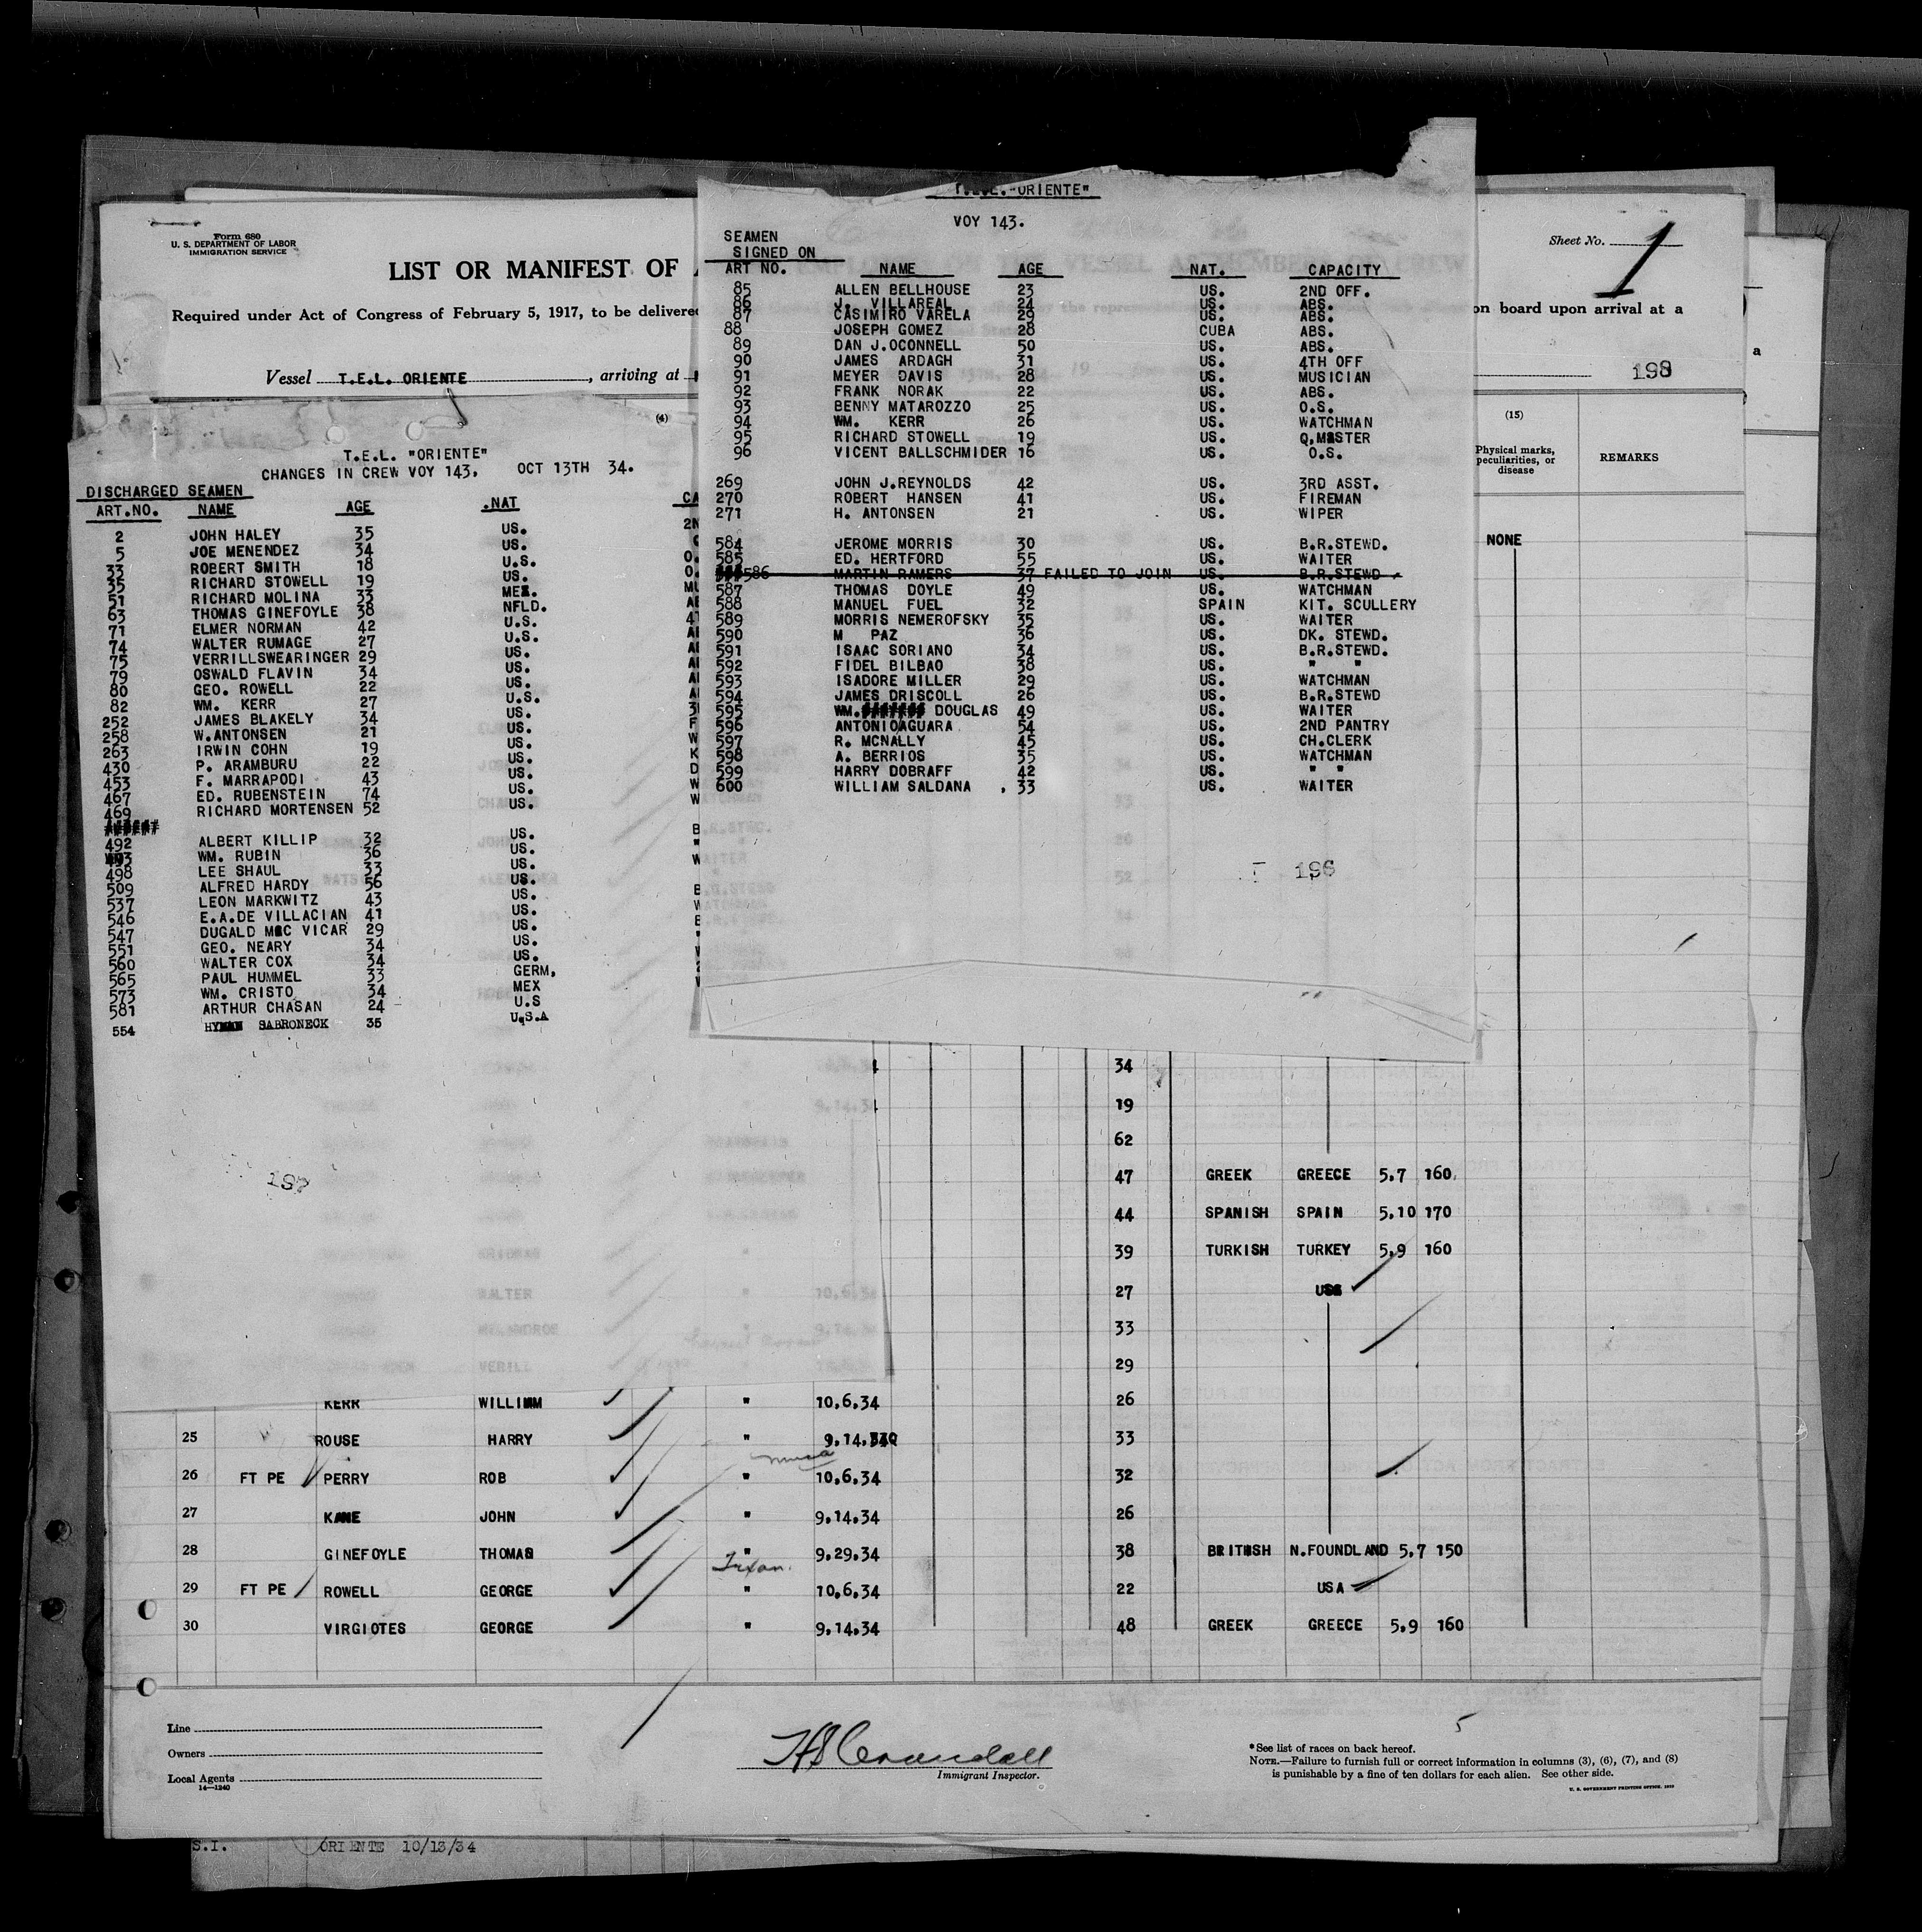 Form 680
U. S. DEPARTMENT OF LABOR
IMMIGRATION SERVICE
LIST OR MANIFEST OF
Required under Act of Congress of February 5, 1917, to be delivered
on board upon arrival at a
Sheet No. 1
Vessel T.E.L. ORIENTE, arriving at
198
(4)
(15)
Physical marks, peculiarities, or disease
REMARKS
NONE
T.E.L. "ORIENTE"
VOY 143.
SEAMEN
SIGNED ON
ART NO. NAME AGE NAT. CAPACITY
85 ALLEN BELLHOUSE 23 US. 2ND OFF.
86 J. VILLAREAL 24 US. ABS.
87 CASIMIRO VARELA 29 US. ABS.
88 JOSEPH GOMEZ 28 CUBA ABS.
89 DAN J.OCONNELL 50 US. ABS.
90 JAMES ARDAGH 31 US. 4TH OFF
91 MEYER DAVIS 28 US. MUSICIAN
92 FRANK NORAK 22 US. ABS.
93 BENNY MATAROZZO 25 US. O.S.
94 WM. KERR 26 US. WATCHMAN
95 RICHARD STOWELL 19 US. Q,MASTER
96 VICENT BALLSCHMIDER 16 US. O.S.
269 JOHN J.REYNOLDS 42 US. 3RD ASST.
270 ROBERT HANSEN 41 US. FIREMAN
271 H. ANTONSEN 21 US. WIPER
584 JEROME MORRIS 30 US. B.R.STEWD.
585 ED. HERTFORD 55 US. WAITER
586 MARTIN RAMERS 37 FAILED TO JOIN US. B.R.STEWD
587 THOMAS DOYLE 49 US. WATCHMAN
588 MANUEL FUEL 32 SPAIN KIT. SCULLERY
589 MORRIS NEMEROFSKY 35 US. WAITER
590 M PAZ 36 US. DK. STEWD.
591 ISAAC SORIANO 34 US. B.R.STEWD.
592 FIDEL BILBAO 38 US. " "
593 ISADORE MILLER 29 US. WATCHMAN
594 JAMES DRISCOLL 26 US. B.R.STEWD
595 WM. DOUGLAS 49 US. WAITER
596 ANTONIO AGUARA 54 US. 2ND PANTRY
597 R. MCNALLY 45 US. CH.CLERK
598 A. BERRIOS 35 US. WATCHMAN
599 HARRY DOBRAFF 42 US. " "
600 WILLIAM SALDANA 33 US. WAITER
196
T.E.L. "ORIENTE"
CHANGES IN CREW VOY 143, OCT 13TH 34.
DISCHARGED SEAMEN
ART.NO. NAME AGE .NAT CA
2 JOHN HALEY 35 US. 2N
5 JOE MENENDEZ 34 US.
33 ROBERT SMITH 18 U.S. O.
35 RICHARD STOWELL 19 US.
51 RICHARD MOLINA 33 MEX.
63 THOMAS GINEFOYLE 38 NFLD.
71 ELMER NORMAN 42 U.S.
74 WALTER RUMAGE 27 U.S.
75 VERRILLSWEARINGER 29 US.
79 OSWALD FLAVIN 34 US.
80 GEO. ROWELL 22 US.
82 WM. KERR 27 U.S.
252 JAMES BLAKELY 34 US.
258 W.ANTONSEN 21 US.
263 IRWIN COHN 19 US.
430 P. ARAMBURU 22 US.
453 F. MARRAPODI 43 US.
467 ED. RUBENSTEIN 74 US.
469 RICHARD MORTENSEN 52 US.
492 ALBERT KILLIP 32 US.
493 WM. RUBIN 36 US.
498 LEE SHAUL 33 US.
509 ALFRED HARDY 56 US.
537 LEON MARKWITZ 43 US.
546 E.A.DE VILLACIAN 41 US.
547 DUGALD MAC VICAR 29 US.
551 GEO. NEARY 34 US.
560 WALTER COX 34 US.
565 PAUL HUMMEL 33 GERM,
573 WM. CRISTO 34 MEX
581 ARTHUR CHASAN 24 U.S
554 HYMAN SABRONECK 35 U.S.A
197
34
19
62
47 GREEK GREECE 5,7 160
44 SPANISH SPAIN 5,10 170
39 TURKISH TURKEY 5,9 160
WALTER " 10,6,34 27 USA
33
VERILL 29
KERR WILLIAM " 10,6,34 26
25 ROUSE HARRY " 9,14,34 33
26 FT PE PERRY ROB " 10,6,34 32
27 KANE JOHN " 9,14,34 26
28 GINEFOYLE THOMAS " 9,29,34 38 BRITISH N.FOUNDLAND 5,7 150
29 FT PE ROWELL GEORGE " 10,6,34 22 USA
30 VIRGIOTES GEORGE " 9,14,34 48 GREEK GREECE 5,9 160
Line
Owners
Local Agents
14—1240
H S Crandall
Immigrant Inspector.
5
*See list of races on back hereof.
NOTE.—Failure to furnish full or correct information in columns (3), (6), (7), and (8)
is punishable by a fine of ten dollars for each alien. See other side.
S.I. ORIENTE 10/13/34